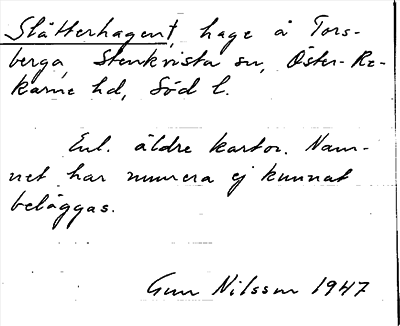 Slåtterhagen†, hage å Tors-
berga, Stenkvista sn, Öster-Re-
karne hd, Söd l.
Enl. äldre kartor. Nam-
net har numera ej kunnat
beläggas.
Gun Nilsson 1947